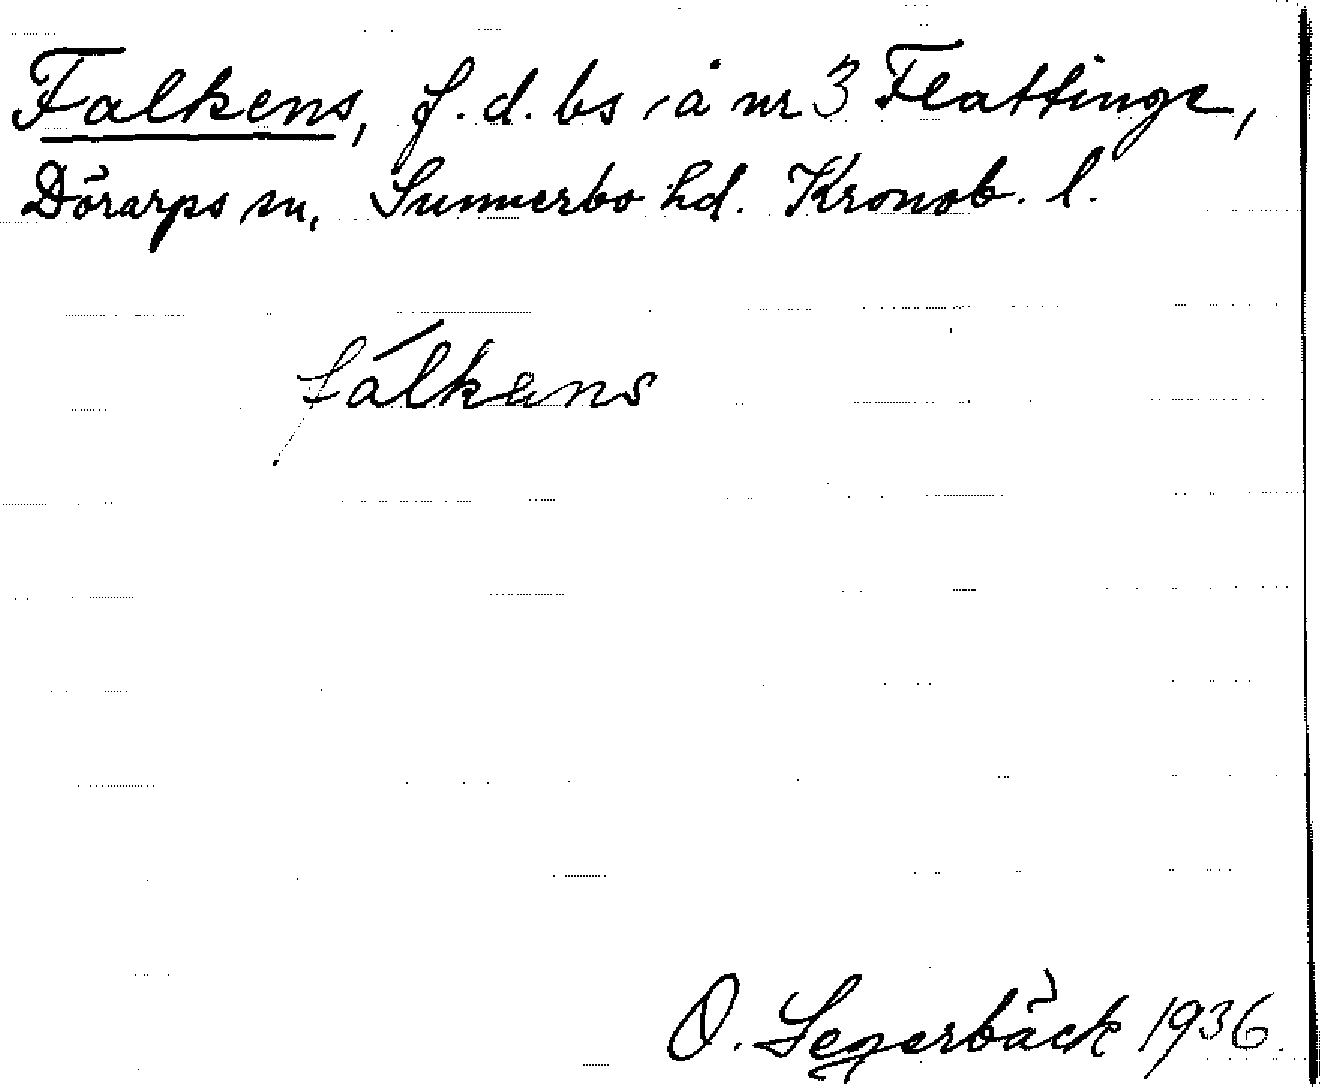 Falkens, f.d. bs å nr 3 Flattinge,
Dörarps sn, Sunnerbo hd. Kronob. l.
fálkens
O. Segerbäck 1936.